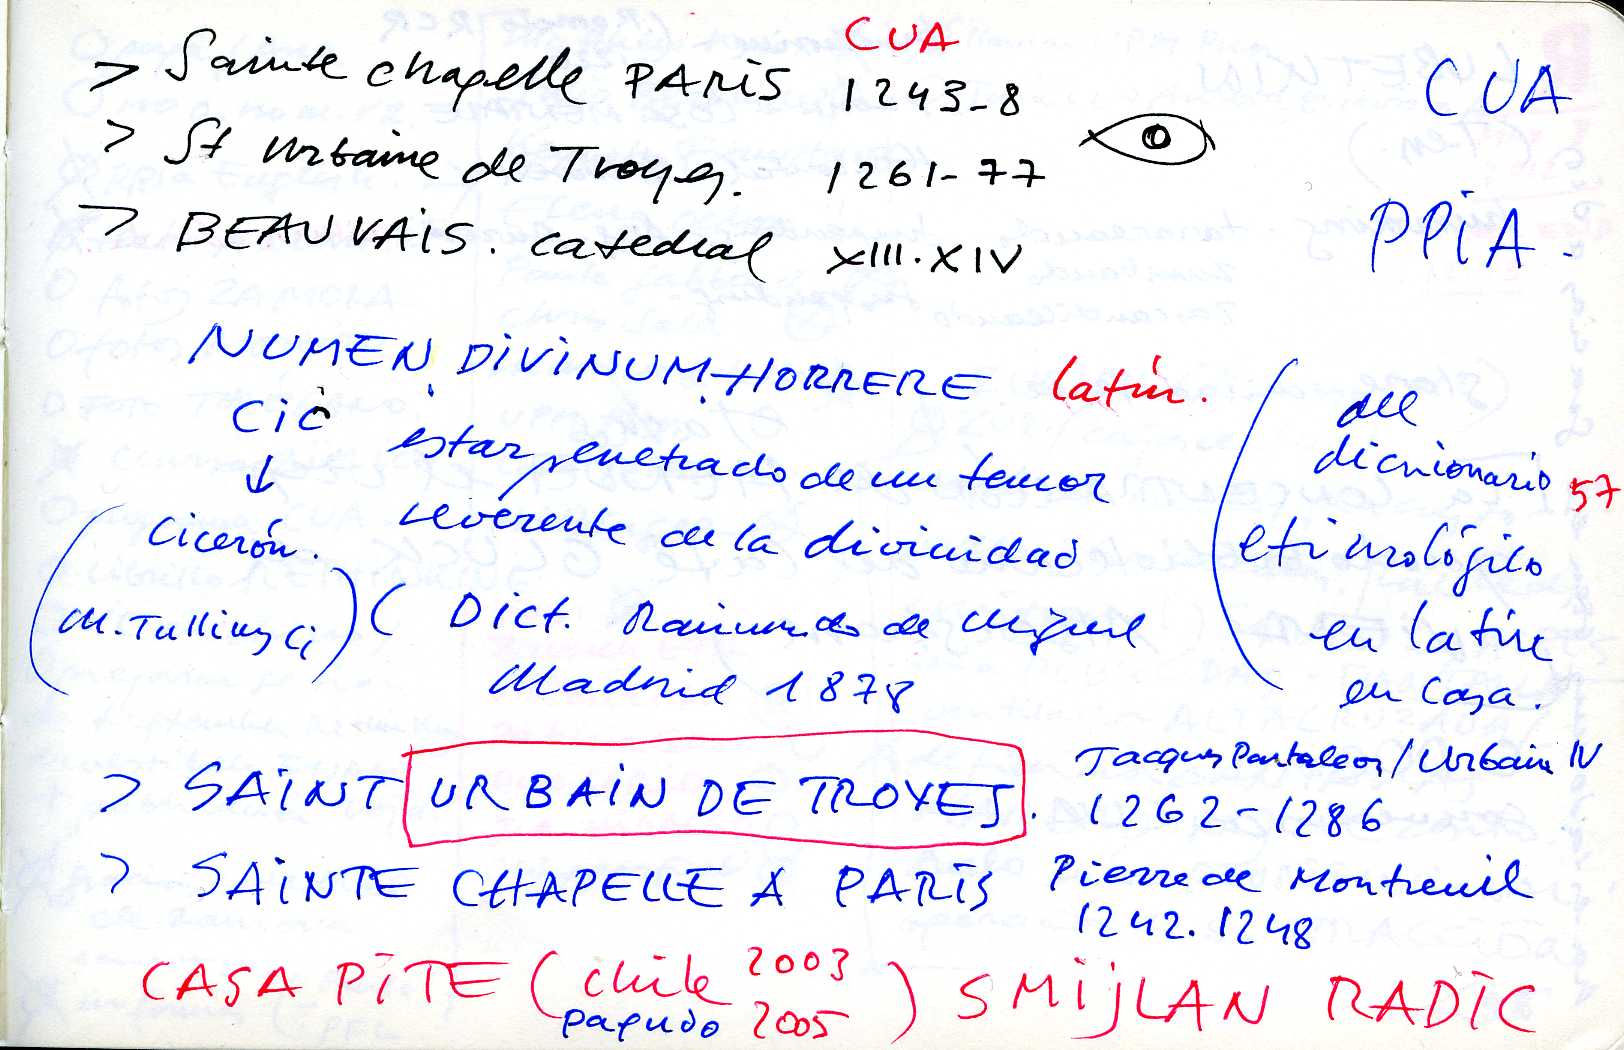 CUA
> Sainte chapelle PARIS 1243-8
CUA
> St Urbaine de Troyes. 1261-77
PPiA.
> BEAUVAIS. catedral XIII.XIV
NUMEN, DIVINUM, HORRERE latín.
Cic
estar penetrado de un temor
reverente de la divinidad
Cicerón.
M. Tullius Ci
( Dict. Raimundo de Miguel
Madrid 1878
del
diccionario 57
etimológico
en latín
en casa.
> SAINT URBAIN DE TROYES. Jacques Pantaleon / Urbain IV
1262-1286
> SAINTE CHAPELLE A PARIS Pierre de Montreuil
1242.1248
CASA PiTE (chile 2003
papudo 2005) SMIJLAN RADIC